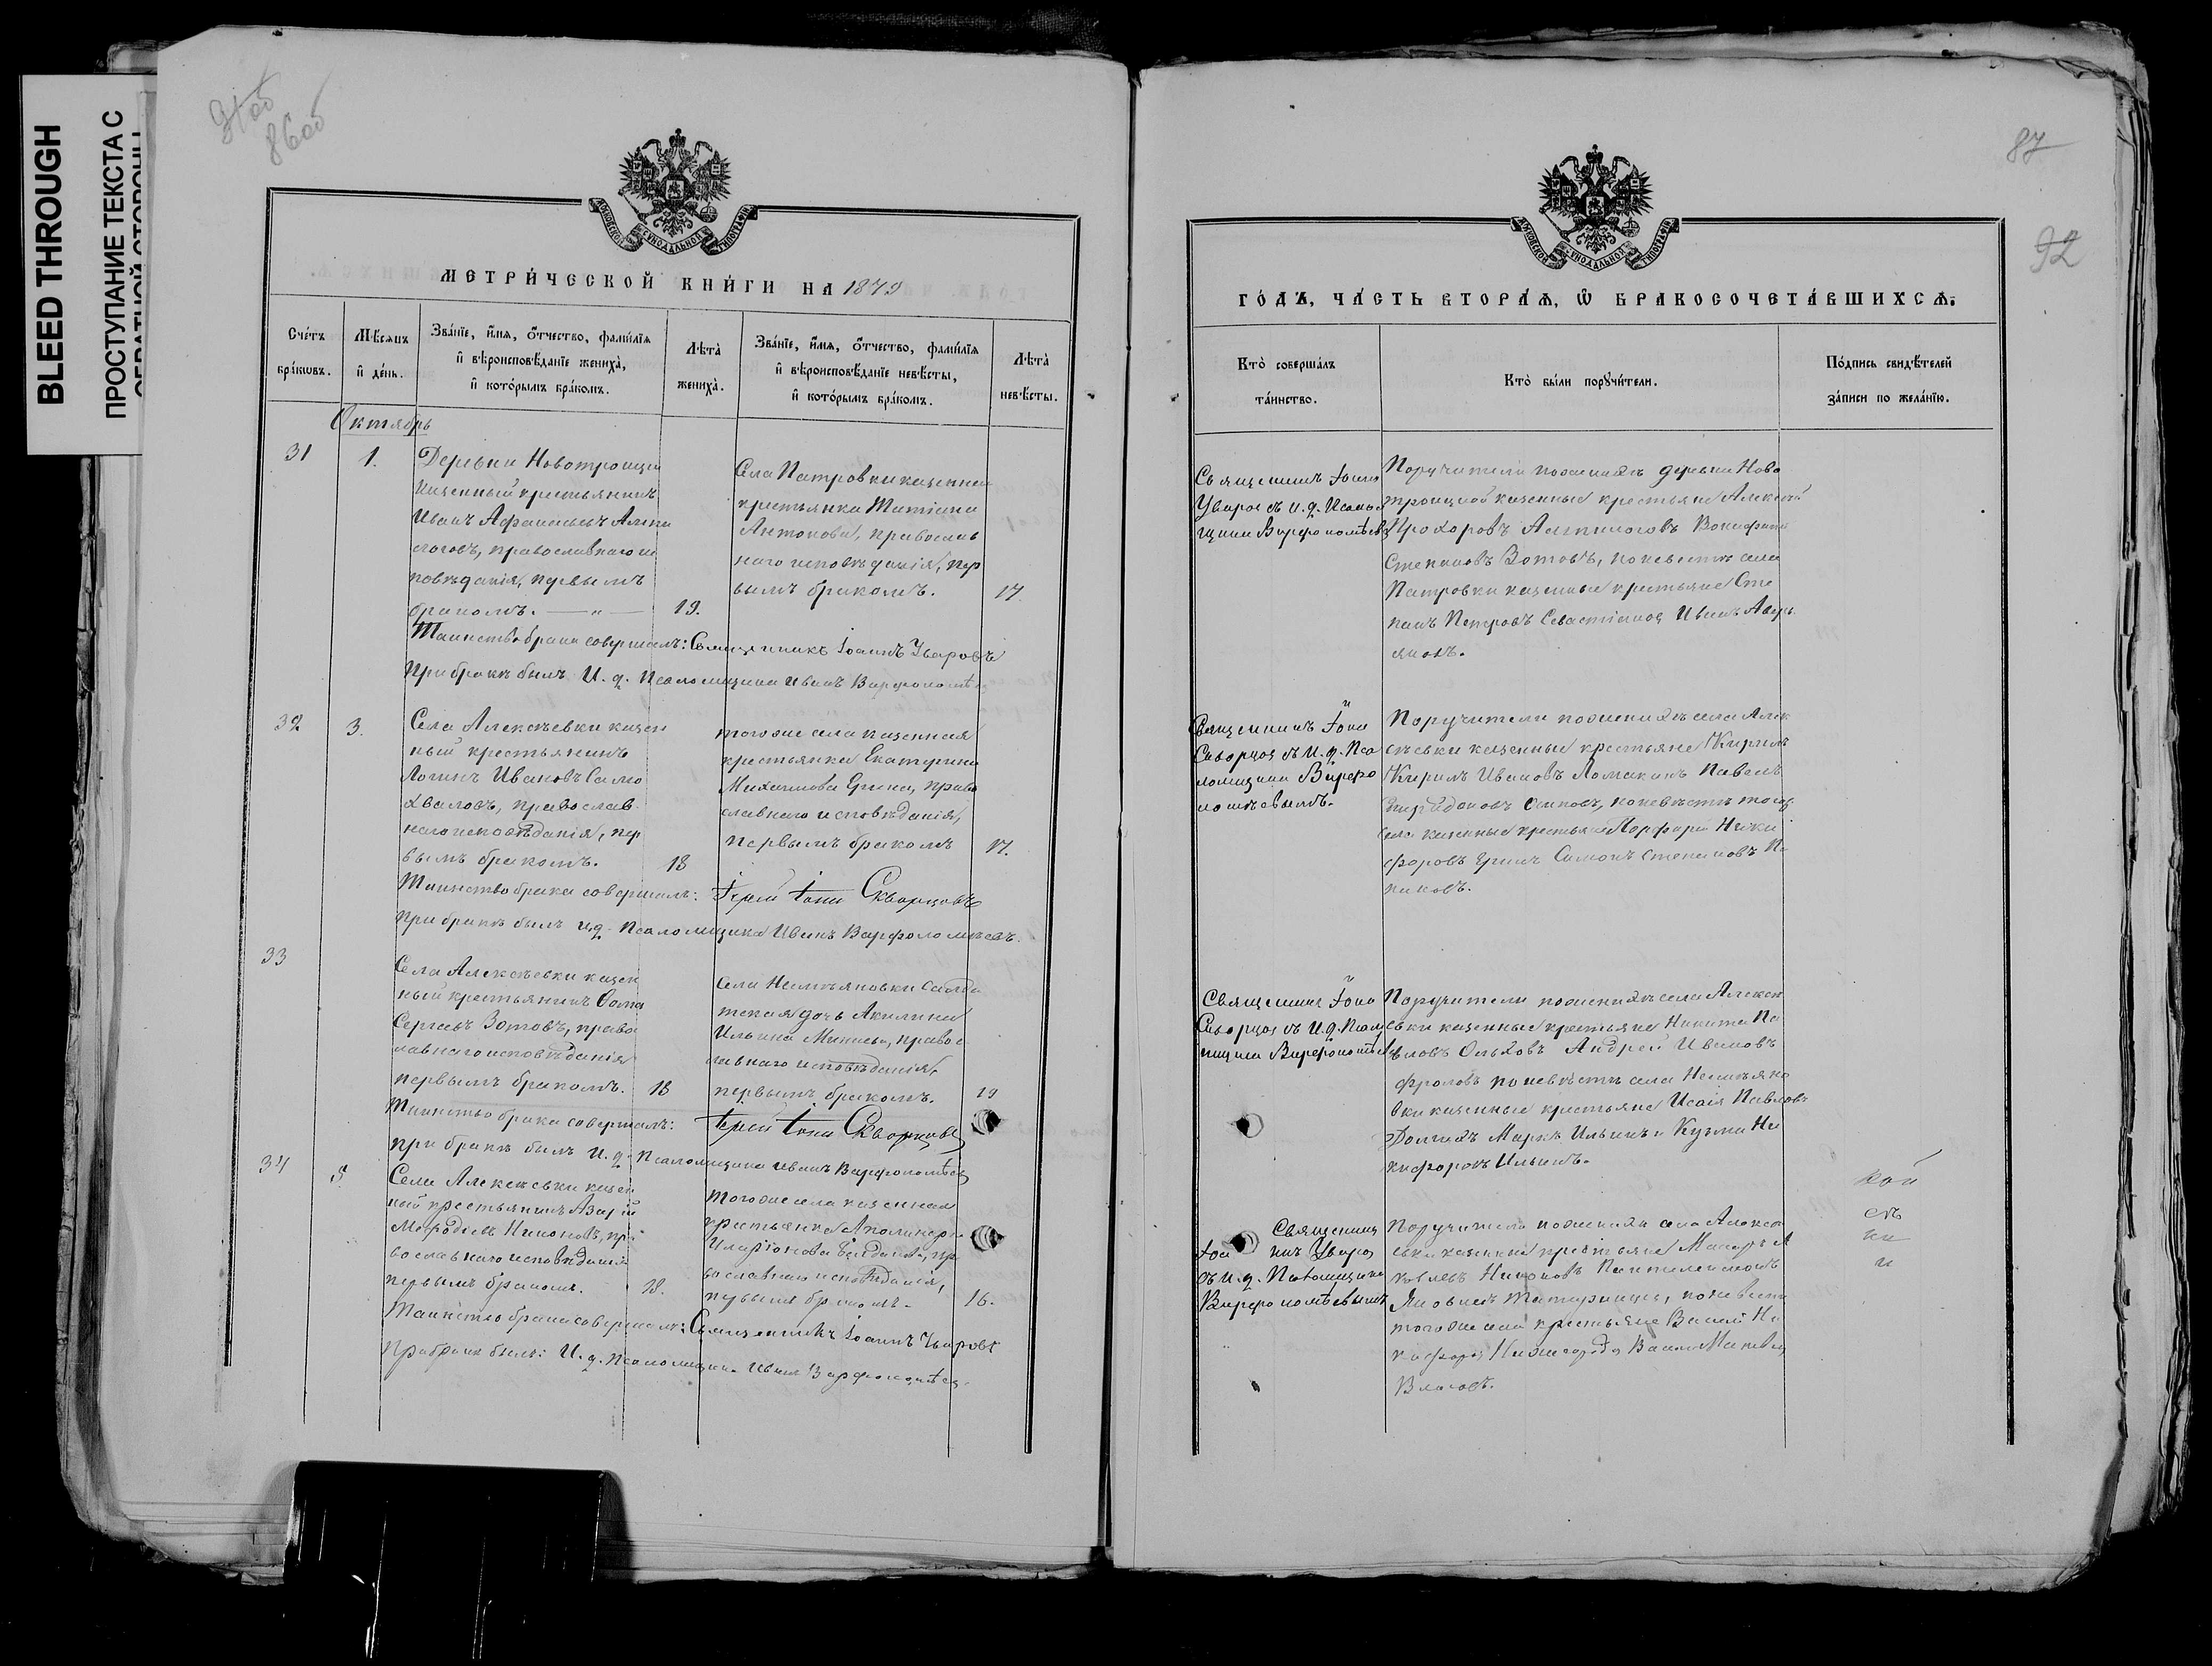 BLEED THROUGH
ПРОСТУПАНИЕ ТЕКСТА С
ОБРАТНОЙ СТОРОНЫ
91об
86об
МОСКОВСКОЙ СѴНОДАЛЬНОЙ ТИПОГРАФІИ
МЕТРИ́ЧЕСКОЙ КНИ́ГИ НА 1879
Сче́тъ
бра́кωвъ.
Мѣсяцъ
и҆ де́нь.
Зва́нїе, и҆́мя, ѻ҆́тчество, фами́лїя
и҆ вѣроисповѣ́данїе жениха̀,
и҆ кото́рымъ бра́комъ.
Лѣ́та̀
жениха̀.
Зва́нїе, и҆́мя, ѻ҆́тчество, фами́лїя
и҆ вѣроисповѣ́данїе невѣ́сты,
и҆ кото́рымъ бра́комъ.
Лѣ́та̀
невѣ́сты.
Октябрь
31
1.
Деревни Новотроицкой
казенный крестьянинъ
Иванъ Афанасьевъ
православнаго ис
повѣданія, первымъ
бракомъ. — „ —
19.
Села Патровки казенная
крестьянка Татіана
Антонова, православ
наго исповѣданія, пер
вымъ бракомъ.
17.
Таинство брака совершалъ: Священникъ Іоаннъ Уваровъ
При бракѣ былъ И. д. Псаломщика Иванъ Варфоломѣевъ
32
3.
Села Алексѣевки казен
ный крестьянинъ
Логинъ Ивановъ Само
хваловъ, православ
наго исповѣданія, пер
вымъ бракомъ.
18
того же села казенная
крестьянка Екатерина
Михайлова право
славнаго исповѣданія,
первымъ бракомъ
17.
Таинство брака совершалъ: Іерей Іона Скворцовъ
при бракѣ былъ И.д. Псаломщика Иванъ Варфоломѣевъ.
33
Села Алексѣевки казен
ный крестьянинъ Фома
Сергѣевъ Зотовъ, право
славнаго исповѣданія
первымъ бракомъ.
18
села Несмѣяновки Салда
тская дочь Акилина
Ильина православ
лавнаго исповѣданія,
первымъ бракомъ.
19
Таинство брака совершалъ: Іерей Іона Скворцовъ
при бракѣ былъ И. д. Псаломщика Иванъ Варфоломѣевъ
34
5.
Села Алексѣевки казен
ный крестьянинъ Азарій
Мефодіевъ Никоновъ, пра
вославнаго исповѣданія
первымъ бракомъ.
18.
того же села казенная
крестьянка Аполинарія
Иларіонова пра
вославнаго исповѣданія,
первымъ бракомъ.
16.
Таинство брака совершалъ: Священникъ Іоаннъ Уваровъ
При бракѣ былъ: И. д. Псаломщика Иванъ Варфоломѣевъ.
87
92
МОСКОВСКОЙ СѴНОДАЛЬНОЙ ТИПОГРАФІИ
ГО́ДЪ, ЧА́СТЬ ВТОРА́Я, Ѽ БРАКОСОЧЕТА́ВШИХСЯ.
Кто̀ соверша́лъ
та́инство.
Кто̀ бы́ли порꙋчи́тели.
По́дпись свидѣ́телей
за́писи по жела́нїю.
Священникъ Іоаннъ
Уваровъ съ И. д. Псалом
щика Варфоломѣевымъ
Поручители по женихѣ деревни Ново
троицкой казенные крестьяне Алексѣй
Прохоровъ
Степановъ Зотовъ, по невѣстѣ села
Патровки казенные крестьяне Сте
панъ Петровъ Севастіановъ Иванъ Аверь
яновъ.
Священникъ Іона
Скворцовъ съ И. д. Пса
ломщика Варфо
ломѣевымъ.
Поручители по женихѣ села Алек
сѣевки казенные крестьяне Кирилъ
Кирилъ Ивановъ Ломакинъ Павелъ
Спиридоновъ Осиповъ, по невѣстѣ того же
села казенные крестьяне Порфирій Ники
форовъ Симонъ Степановъ По
повъ.
Священникъ Іона
Скворцовъ съ И. д. Псалом
щика Варфоломѣевымъ
Поручители по женихѣ села Алексѣ
евки казенные крестьяне Никита Па
вловъ Ольховъ Андрей Ивановъ
Фроловъ по невѣстѣ села Несмѣяно
вки казенные крестьяне Исаія Павловъ
Долгихъ Маркъ Ильинъ и Кузма Ни
кифоровъ Ильинъ.
Священникъ
Іоаннъ Уваровъ
съ И. д. Псаломщика
Варфоломѣевымъ
Поручители по женихѣ села Алексѣ
евки казенные крестьяне Макаръ
Никоновъ Пантелеимонъ
Яковлевъ по невѣстѣ
того же села крестьяне Василій Ни
кифоровъ
Власовъ.
кой
съ